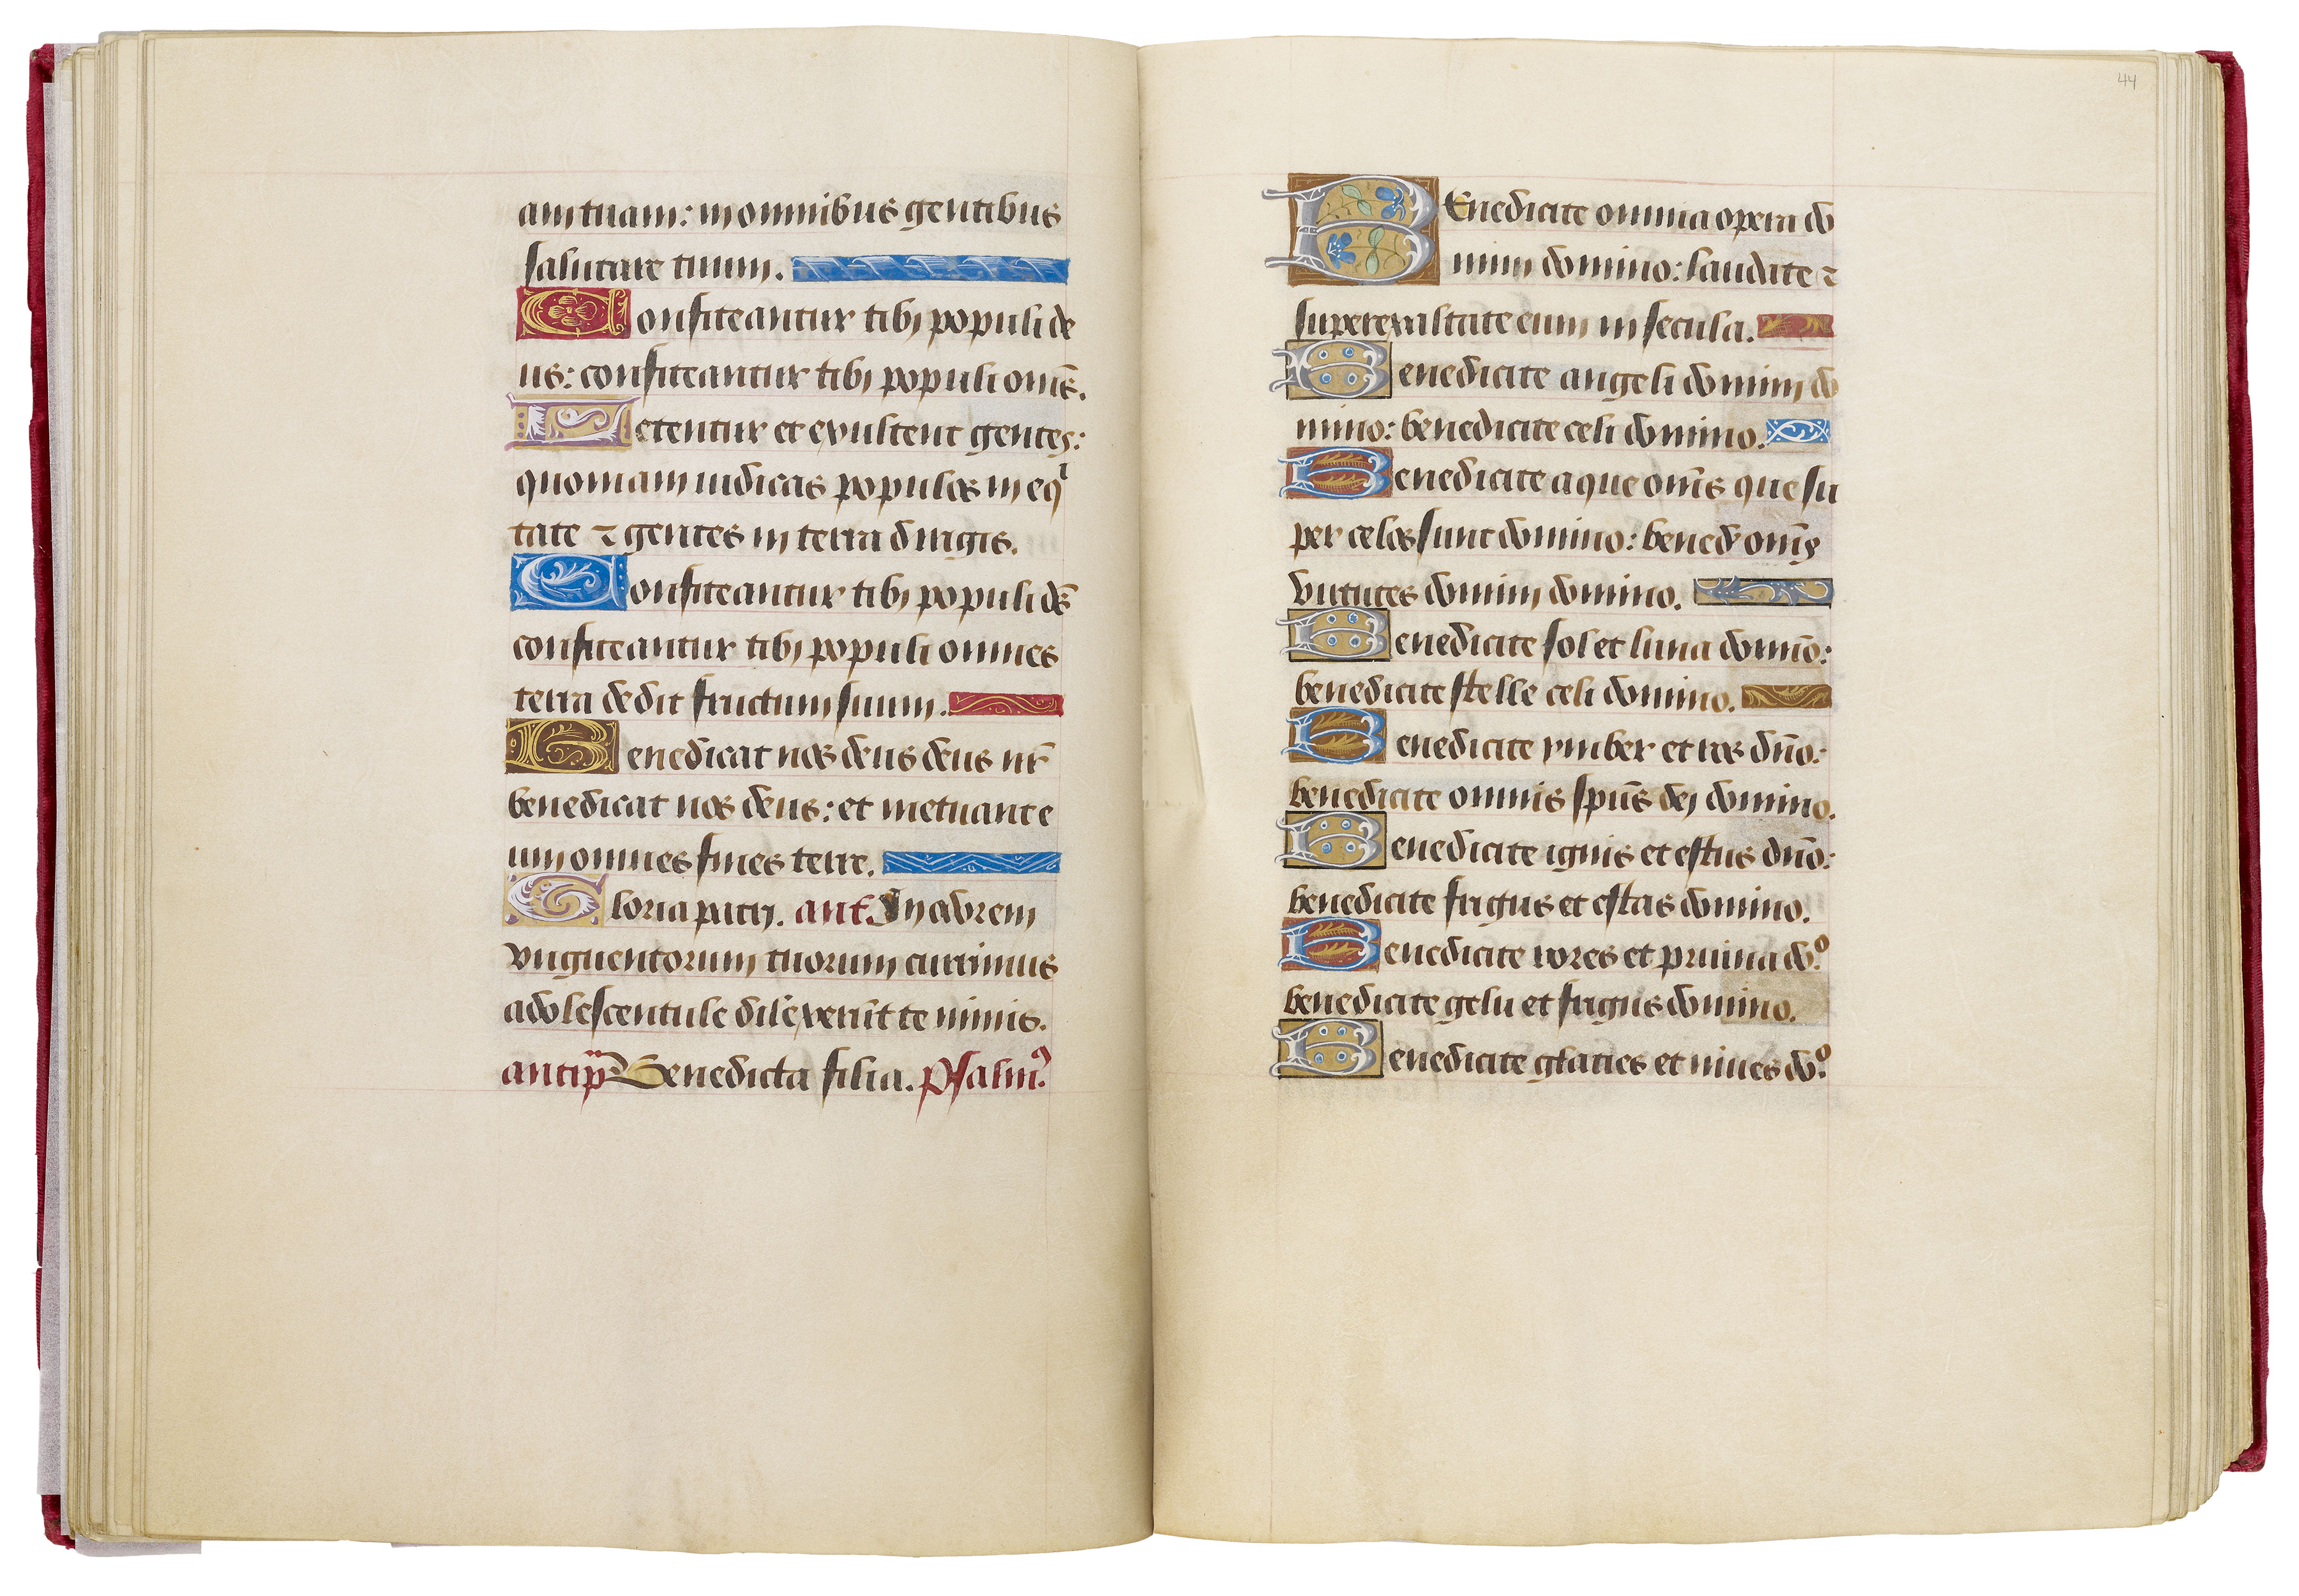 am tuam: in omnibus gentibus
salutare tuum.
Confiteantur tibi populi de
us: confiteantur tibi populi om̄s.
Letentur et exultent gentes:
quoniam iudicas populos in eqⁱ
tate ⁊ gentes in terra dirigis.
Confiteantur tibi populi de᷒
confiteantur tibi populi omnes
terra dedit fructum suum.
Benedicat nos deus deus nr̄
benedicat nos deus: et metuant e
um omnes fines terre.
Gloria patri. ant. In odorem
vnguentorum tuorum currimus
adolescentule dilexerūt te nimis.
antiph̄ Benedicta filia. Psalm᷒.
44
BEnedicite omnia opera do
mini domino: laudate ⁊
superexaltate eum in secula.
Benedicite angeli domini do
mino: benedicite celi domino.
Benedicite aque om̄s que su
per celos sunt domino: bened̄ om̄s
virtutes domini domino.
Benedicite sol et luna domīo:
benedicite stelle celi domino.
Benedicite ymber et ros dn̄o:
benedicite omnis spūs dei domino.
Benedicite ignis et estus dn̄o:
benedicite frigus et estas domino.
Benedicite rores et pruina doº.
benedicite gelu et frigus domino.
Benedicite glacies et niues doº.